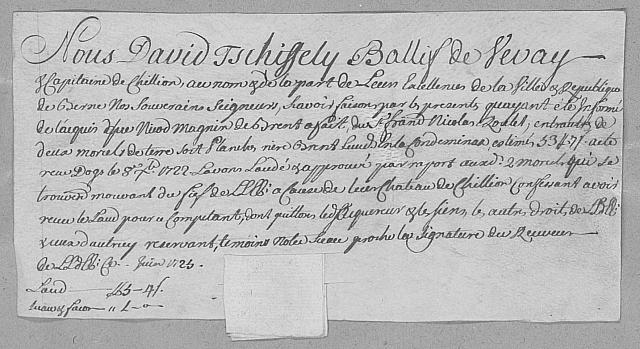 Nous David Tschiffely Ballif de Vevay
& Capitaine de Chillion, au nom & de la part de Leurs Excellences de la Ville & Republique
de Berne Nos Souverains Seigneurs, Savoir faisons par les presentes quayant été Informé
de lacquis que Nicod Magnin de Brent a fait, du Sr frand Nicolas, entrautres de
deux morcels de terre soit Planches, riere Brent Lieudit En la Condemine estimés 53 fl: 7 s acte
receu Dogs le 8e 7bre 1722 Lavons Laudé & approuvé par raport auxd: 2 morcels que Se
trouvent mouvant du fief de LLEE: a Cause de leur Chateau de Chillion Confessant avoir
receu le Laud pour ce Comptant, dont quittons led: Acquereur & les siens les autres droits de LLEE:
& ceux dautruy reservant, temoins Notre Sceau proche la Signature du Receveur
de LLdEE: Ce Juin 1723.
Laud
Sceau & facon